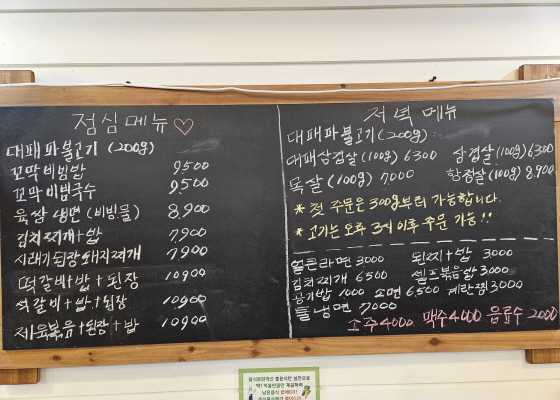 점심 메뉴 ♡
대패파불고기 (200g)
꼬막비빔밥 9,500
꼬막비빔국수 9,500
육쌈냉면 (비빔물) 8,900
김치찌개+밥 7,900
시래기된장돼지찌개 7,900
떡갈비+밥+된장 10,900
석갈비+밥+된장 10,900
제육볶음+된장+밥 10,900
저녁 메뉴
대패파불고기 (200g)
대패삼겹살 (100g) 6,300 삼겹살 (100g) 6,300
목살 (100g) 7,000 항정살 (100g) 8,900
* 첫 주문은 300g부터 가능합니다.
* 고기는 오후 3시 이후 주문 가능!!
얼큰라면 3000 된찌+밥 3000
김치찌개 6500 셀프볶음밥 3000
공기밥 1000 소면 6,500 계란찜 3000
물냉면 7000
소주 4000 맥주 4000 음료수 2000